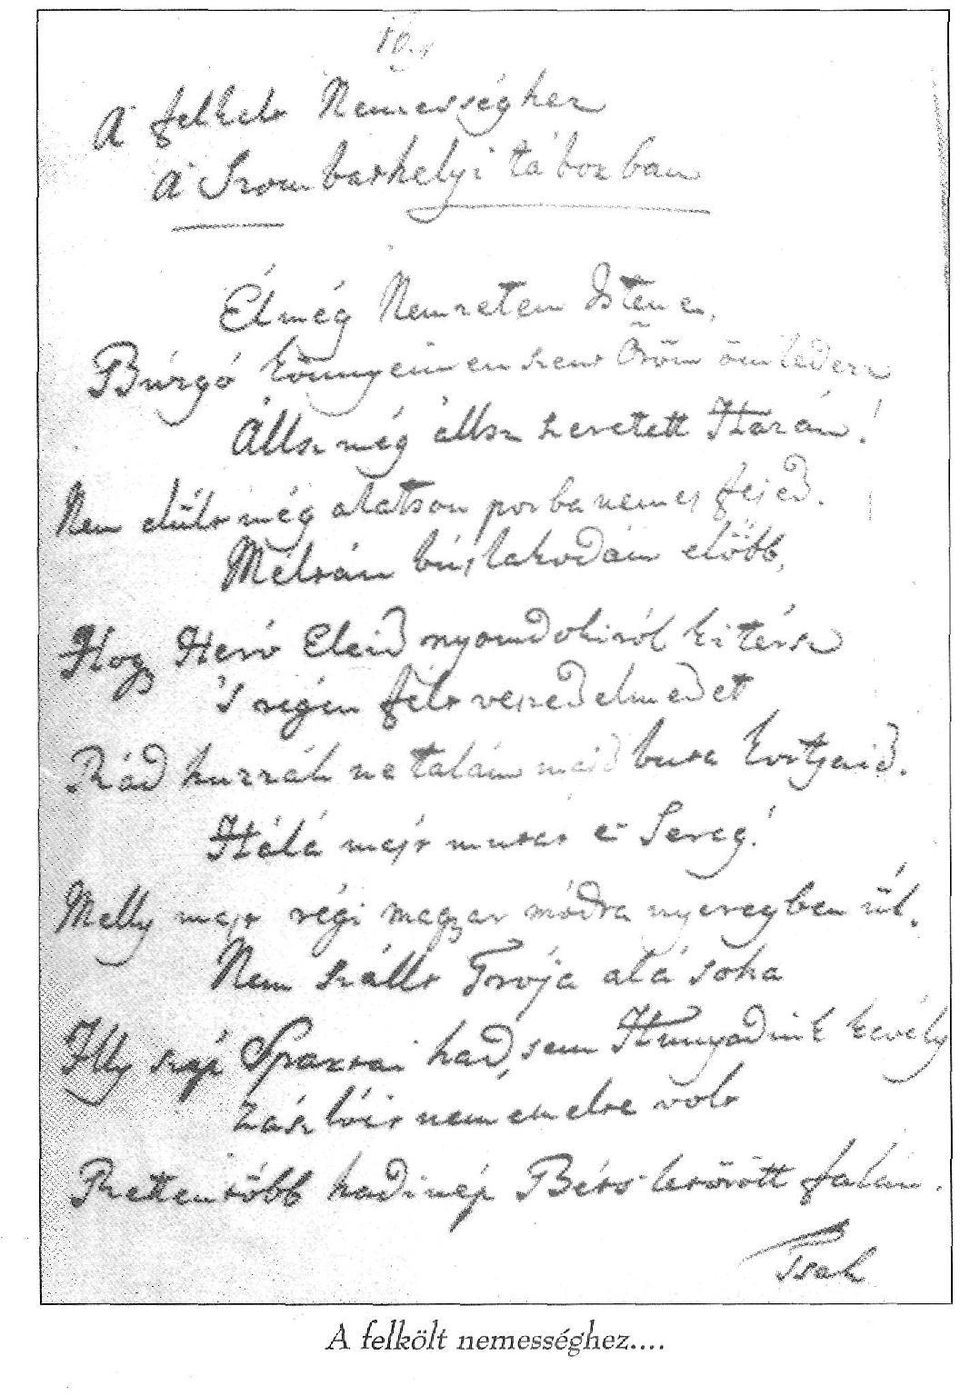 16.
A felkelt Nemességhez
A' Szombathelyi táborban
Él még Nemzetem Istene,
Búzgó könnyeimen szent Öröm ömledezz
Állsz még állsz szeretett Hazám!
Nem dűlt még alatson porba nemes fejed.
Méltán búslakodám előbb,
Hogy Héró Eleid nyomdokiról kitérsz
's régen félt veszedelmedet
Rád huzzák netalám majd buta Kortjaid.
Hálá majt mutat e' Sereg!
Melly majt régi magyar módra nyeregben űl.
Nem szállt Trója alá soha
Illy szép Spártai had, sem Hunyadink kevély
Zászlóit nem emelte volt
Rettentőbb hadi nép Béts letörött falán.
Tsak
A felkölt nemességhez....